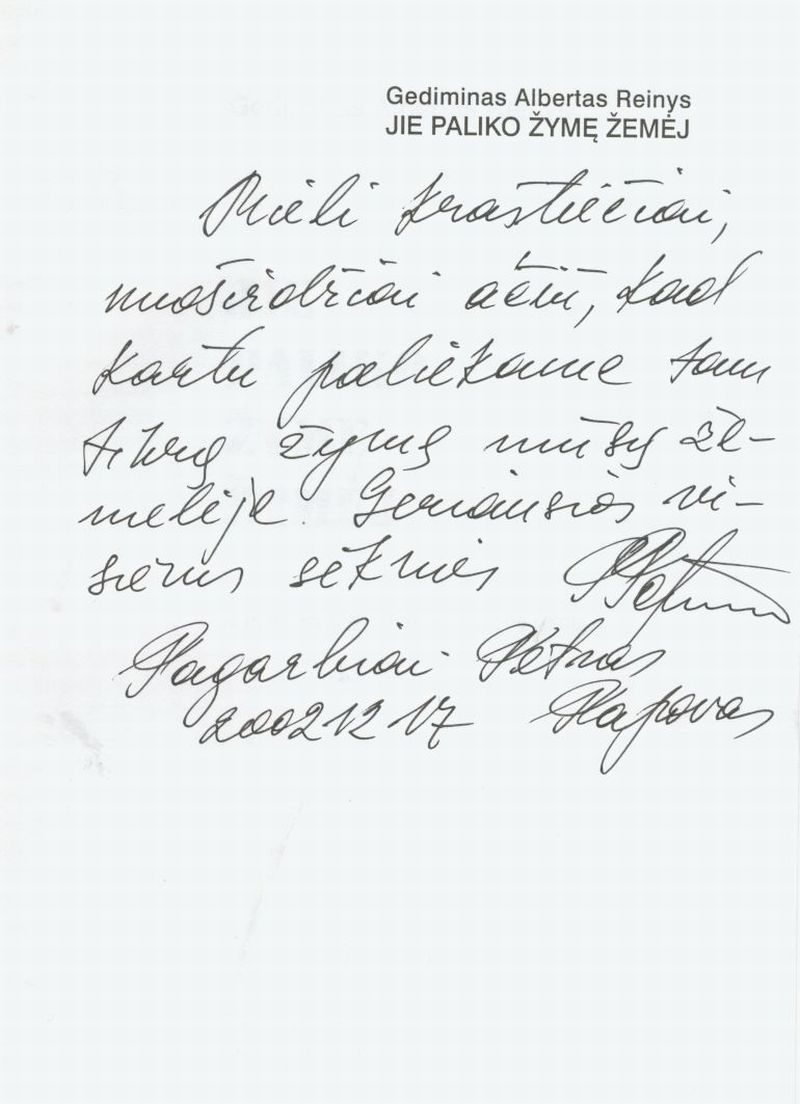 Gediminas Albertas Reinys
JIE PALIKO ŽYMĘ ŽEMĖJ
Mieli kraštiečiai,
nuoširdžiai ačiū, kad
kartu paliekame tam
tikrą žymę mūsų že-
melėje. Geriausios vi-
siems sėkmės
Pagarbiai Petras
2002 12 17